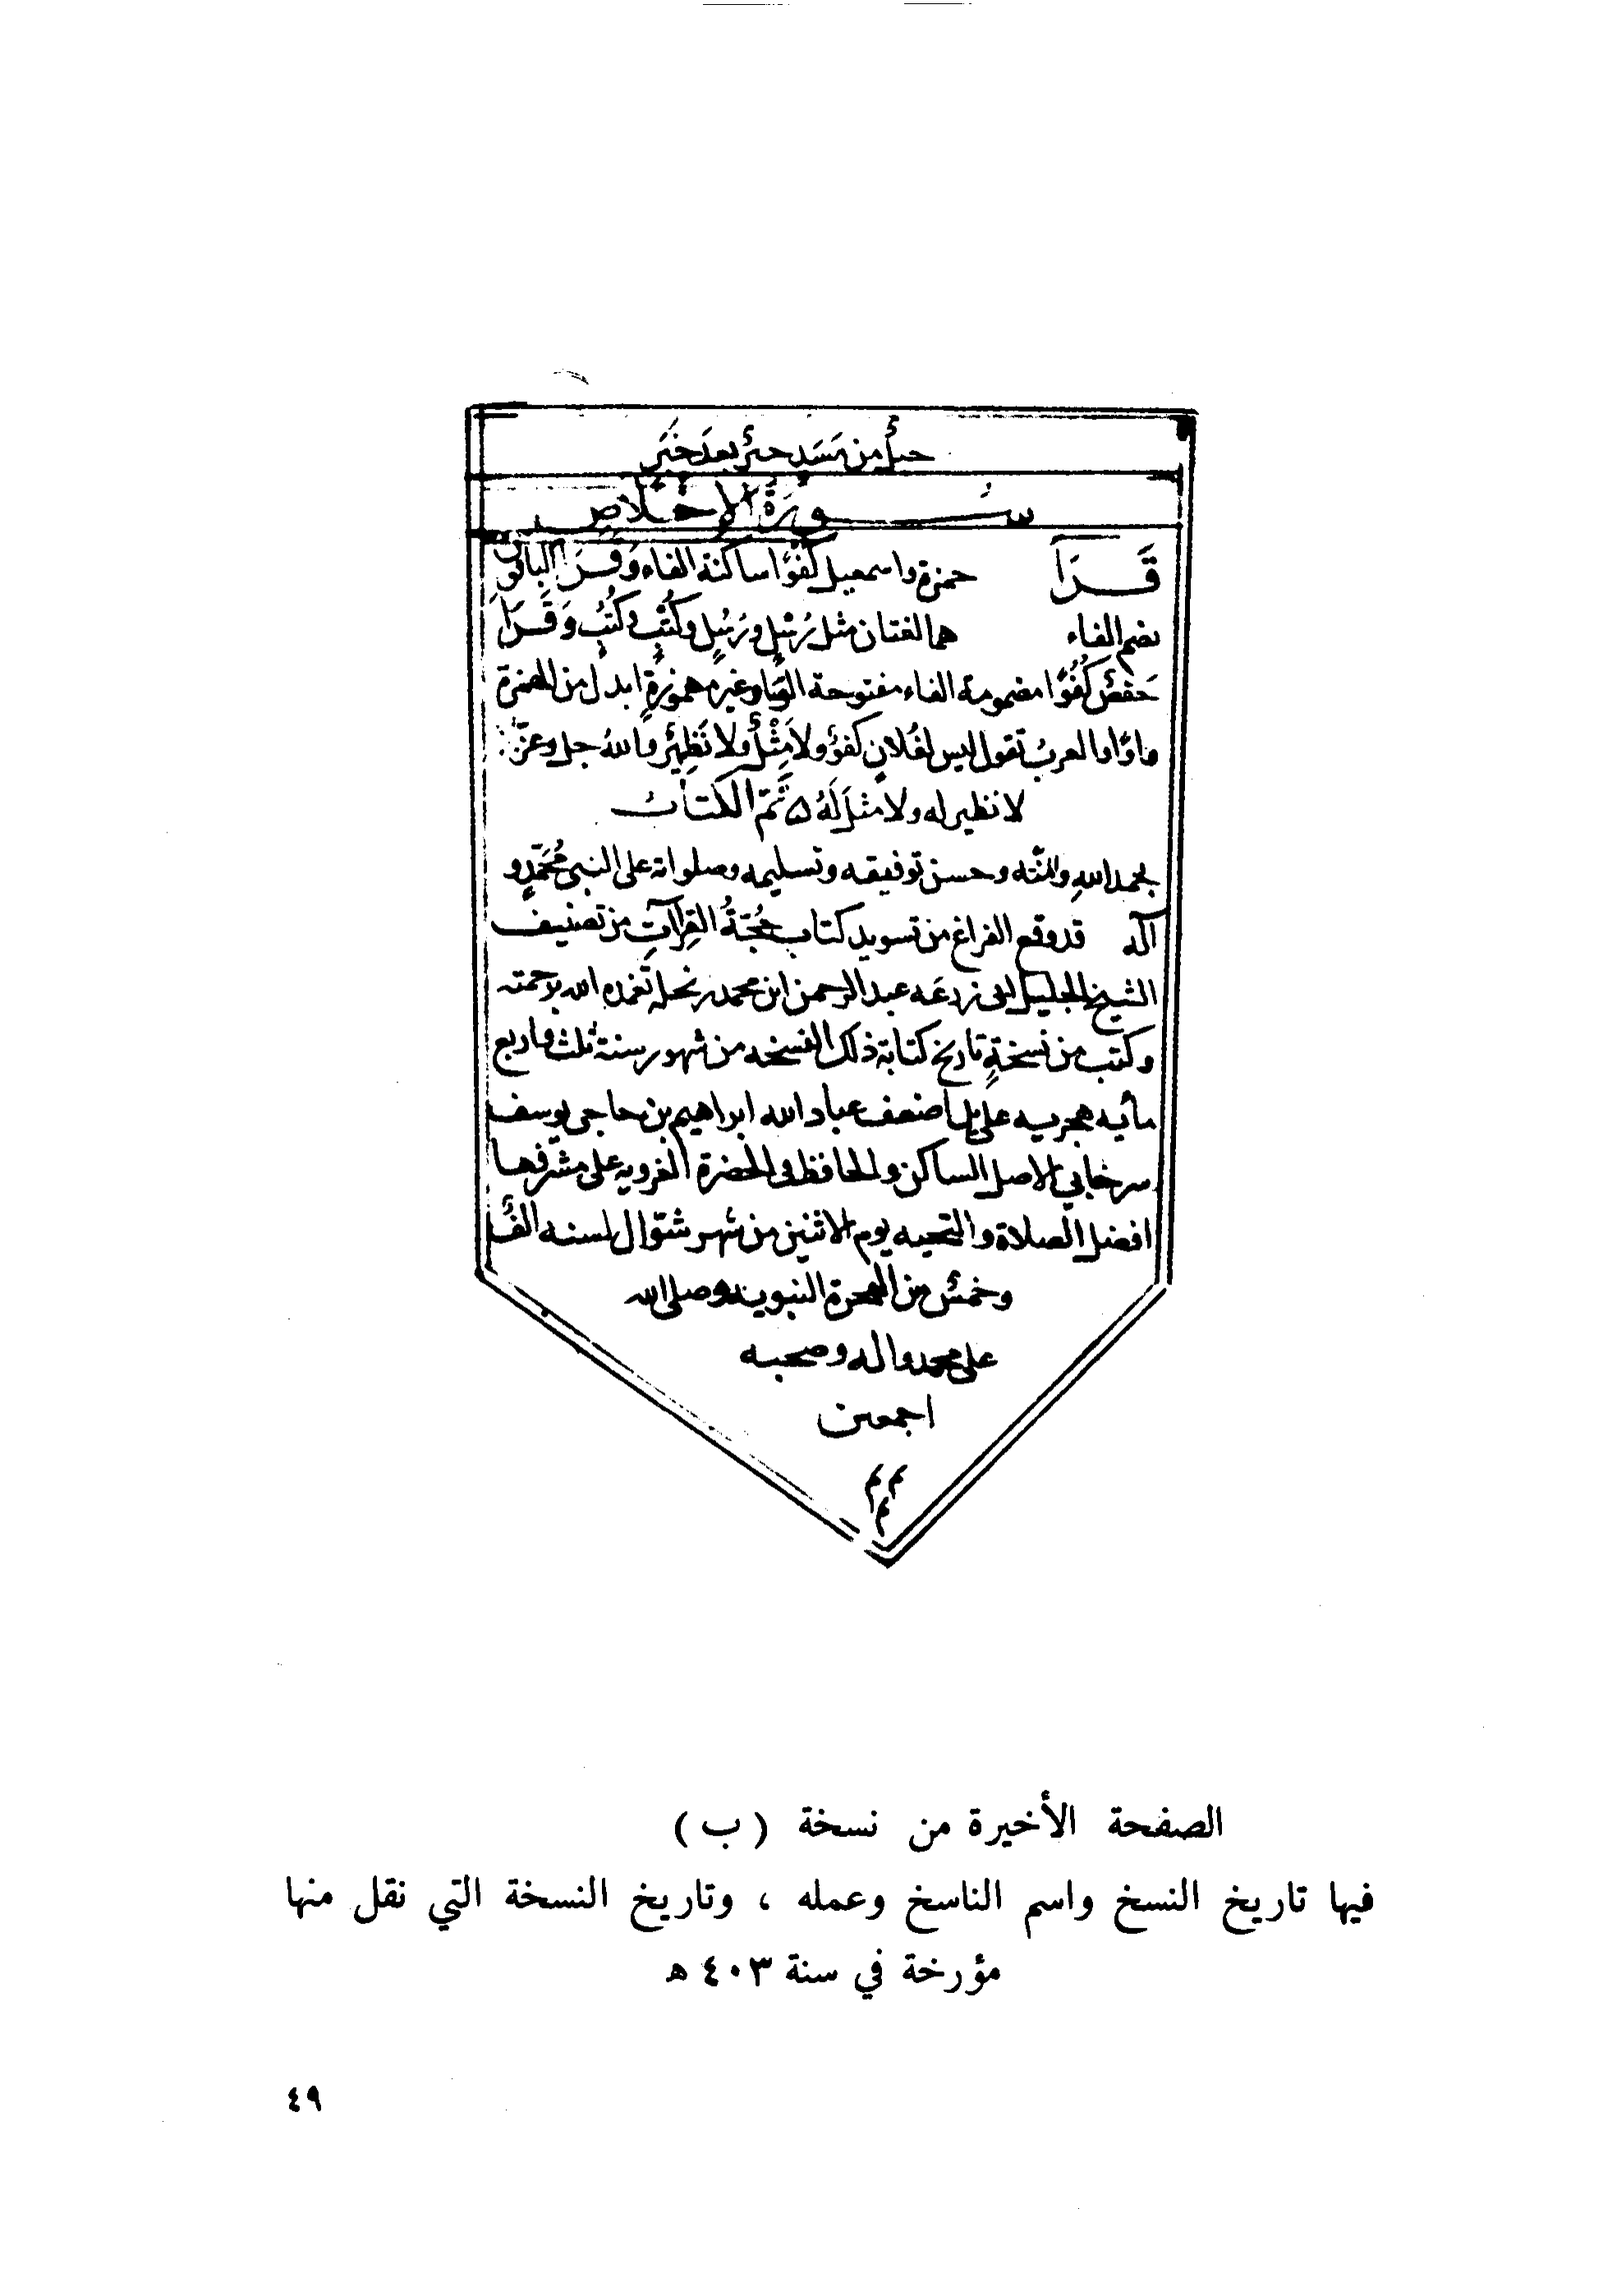 حبل من مسد خبر بعد خبر
سورة الإخلاص
قرأ حمزة واسمعيل كفؤا ساكنة الفاء وقرأ الباقون
بضم الفاء هما لغتان مثل رُسْلٍ ورُسُلٍ وكُتْبٍ وكُتُبٍ وقَرَأ
حفص كُفُوًا مضمومة الفاء مفتوحة الواو غير مهموزةٍ ابدل من الهمزة
واوًا والعرب تقول ليس لفلانٍ كفؤ ولا مِثْلٌ ولا نَظِيرٌ والله جل وعزّ
لا نظير له ولا مثل لَهُ ۵ تَمّ الكتابُ
بحمد اللهِ والمنّه وحسن توفيقه وتسليمه وصلواته على النبى مُحَمّدٍ و
آله قد وقع الفراغ من تسويد كتاب حُجّةُ القِرآآتِ من تصنيف
الشيخ الجليل ابى زرعَه عبد الرحمن ابن محمد بن نجله تغمده الله برحمته
وكتب من نسخةٍ تاريخ كتابة ذلك النسخه من شهور سنة ثلث واربع
مأيه هجريه على يد اضعف عباد الله ابراهيم بن حاجى يوسف
سرخابي الاصل الساكن والحافظ فى الحضرة الغرويه على مشرفها
افضل الصلاة والتحيه يوم الاثنين من شهر شوّال لسنه الف
وخمس من الهجرة النبويه وصلى الله
على محمد واله وصحبه
اجمعين
م م
م
الصفحة الأخيرة من نسخة ( ب )
فيها تاريخ النسخ واسم الناسخ وعمله ، وتاريخ النسخة التي نقل منها
مؤرخة في سنة ٤٠٣ هـ
٤٩